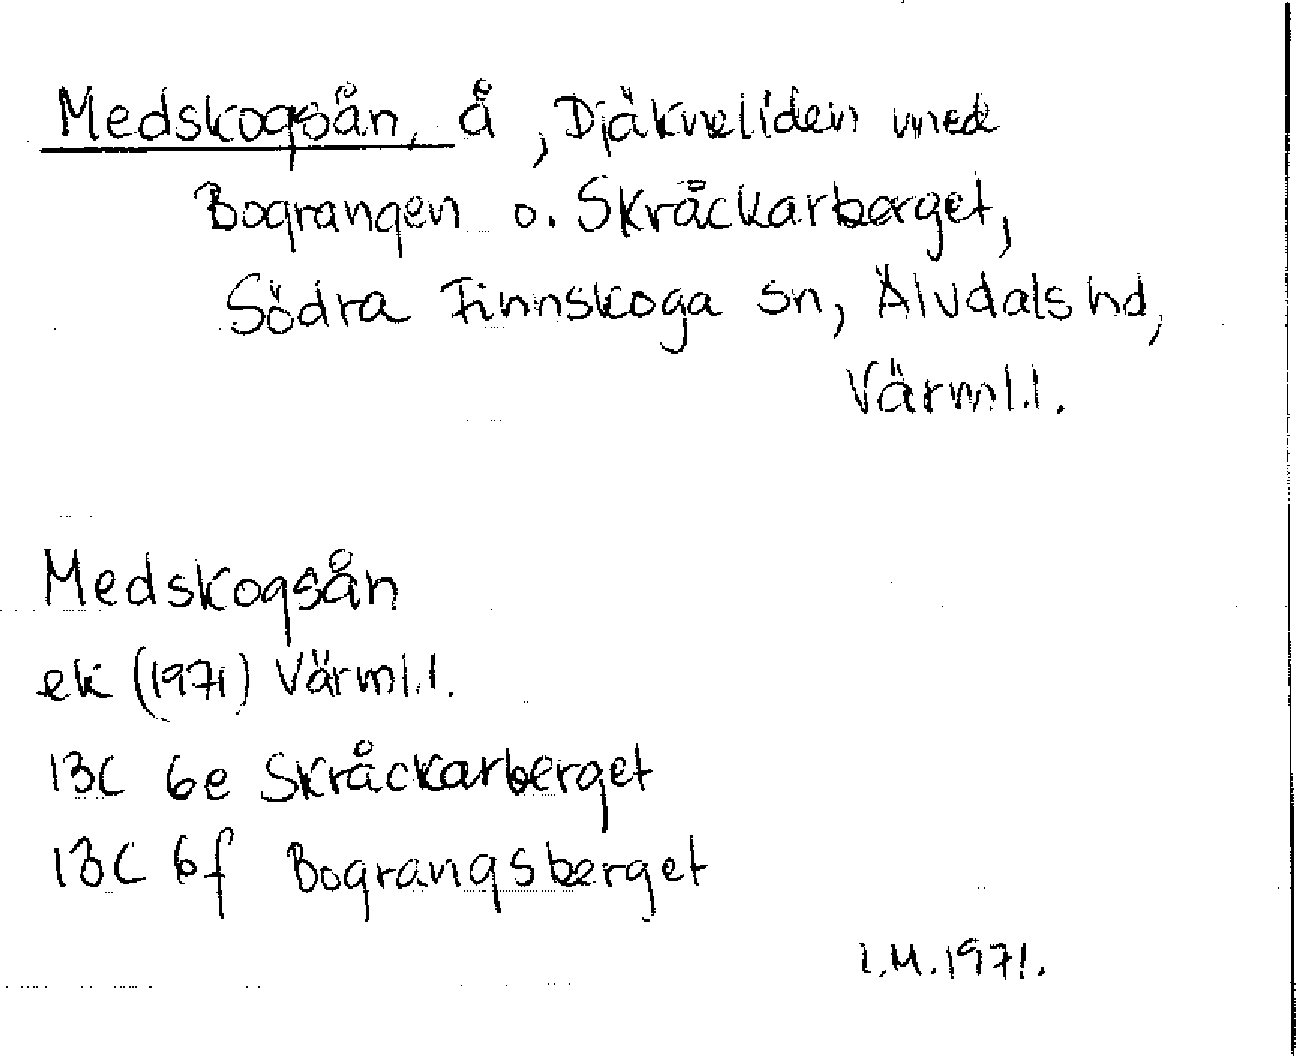 Medskogsån, å, Djäkneliden med
Bograngen o. Skråckarberget,
Södra Finnskoga sn, Älvdals hd,
Värml.l.
Medskogsån
ek (1971) Värml.l.
13C 6e Skråckarberget
13C 6f Bograngsberget
I.M. 1971.